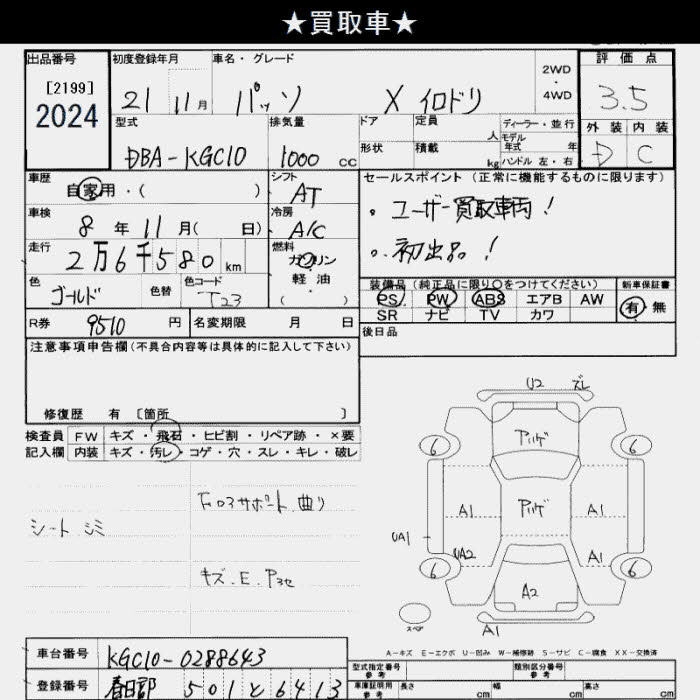 ★買取車★
出品番号
[2199]
2024
初度登録年月
21 11月
車名・グレード
パッソ X イロドリ
2WD
・
4WD
評価点
3.5
外装 内装
D C
型式
DBA-KGC10
排気量
1000 cc
ドア
形状
定員
人
積載
kg
ディーラー・並行
モデル
年式 年
ハンドル 左・右
車歴
自家用・( )
シフト
AT
車検
8年11月( 日)
冷房
A/C
走行
2万6千580km
燃料
ガソリン
・
軽油
( )
色
ゴールド
色替
色コード
T23
R券 9510円
名変期限 月 日
セールスポイント (正常に機能するものに限ります)
。ユーザー買取車両!
。初出品!
装備品 (純正品に限り○をつけてください)
PS PW ABS エアB AW
SR ナビ TV カワ
新車保証書
有・無
後日品
注意事項申告欄(不具合内容等は具体的に記入して下さい)
修復歴 有 [箇所 ]
検査員 FW キズ・飛石・ヒビ割・リペア跡・×要
記入欄 内装 キズ・汚レ・コゲ・穴・スレ・キレ・破レ
シート シミ
コアサポート 曲り
キズ.E.P3セ
U2 ズレ
6 6
A1 A1
UA1
UA2 A1
6 6
A2
A1
スペア
A-キズ E-エクボ U-凹み W-補修跡 S-サビ C-腐食 XX-交換済
車台番号 KGC10-0288643
登録番号 春日部 501と6413
型式指定番号
参考
類別区分番号
参考
車庫証明用
参考
長さ cm 幅 cm 高さ cm